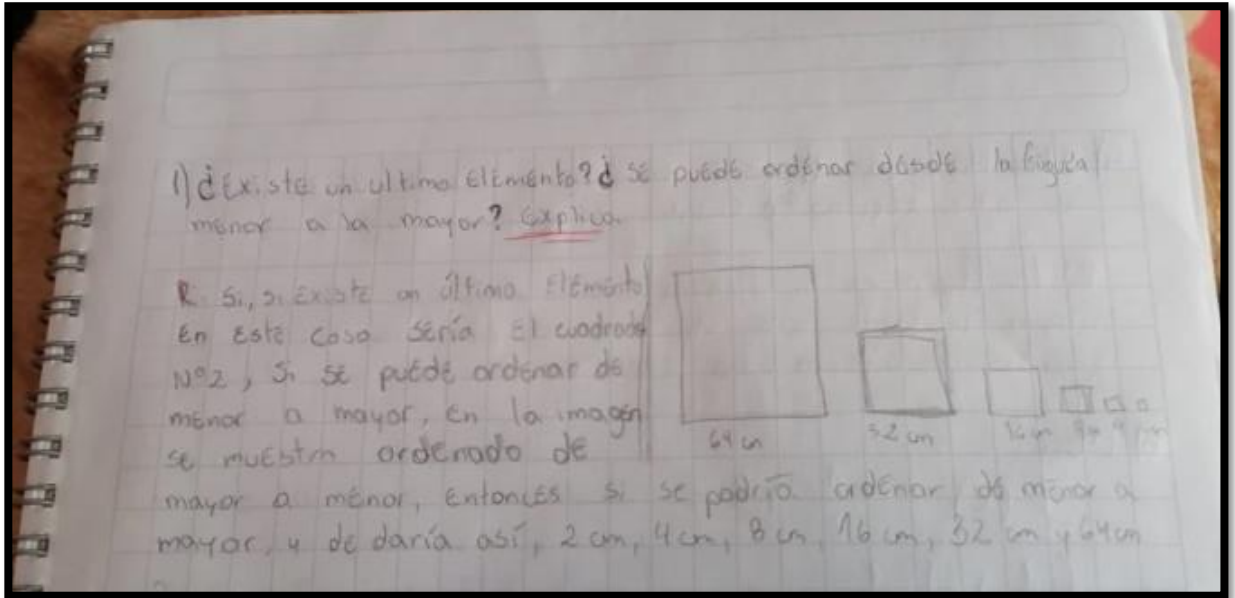 1) ¿Existe un ultimo elemento? ¿ se puede ordenar desde la figura
menor a la mayor? Explica
R. Si, si existe un último elemento
En este caso sería el cuadrado
N°2, Si se puede ordenar de
menor a mayor, En la imagen
se muestra ordenado de
mayor a menor, entonces si se podría ordenar de menor a
mayor, y de daría así, 2 cm, 4 cm, 8 cm, 16 cm, 32 cm y 64 cm
64 cm 32 cm 16 cm